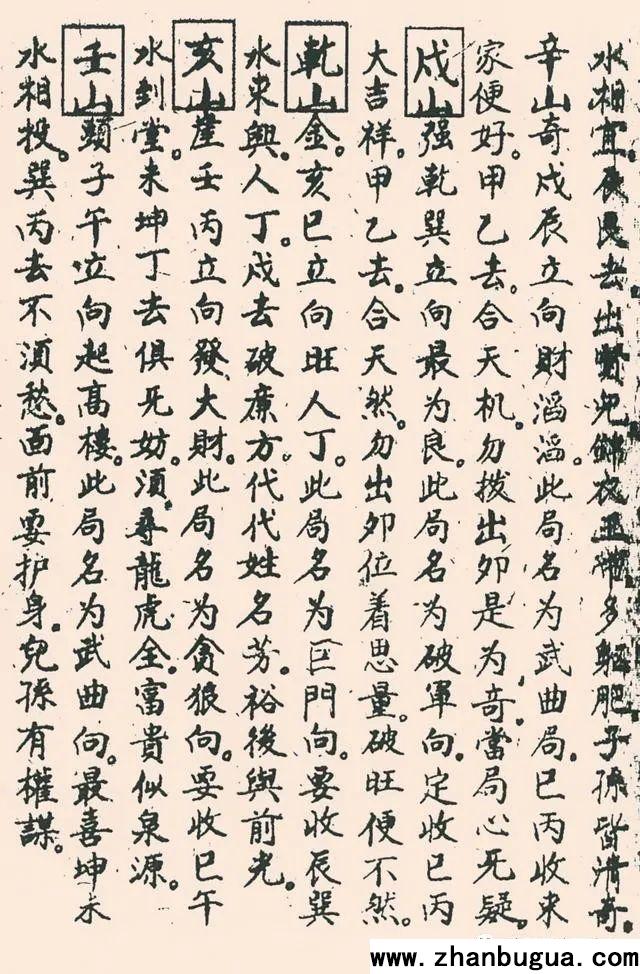 水相宜。辰艮去出賢兒錦衣玉帶多躯肥子孫皆清奇。
辛山奇戍辰立向財滔滔。此局名为武曲局。巳丙收来
家便好。甲乙去。合天机。勿拨出夘是为奇。當局心旡疑。
戍山强乾巽立向最为良。此局名为破軍向。定收巳丙
大吉祥。甲乙去。合天然。勿出夘位着思量。破旺便不然。
乾山金。亥巳立向旺人丁。此局名为巨門向。要收辰巽
水来興。人丁。戍去破廉方。代代姓名芳。裕後與前光。
亥山崖壬丙立向發大財。此局名为贪狼向。要收巳午
水到堂。未坤丁去俱旡妨。須尋龍虎全。富貴似泉源。
壬山頭子午立向起高樓。此局名为武曲向。最喜坤未
水相投。巽丙去不須愁。面前要护身。兒孫有權謀。
www.zhanbugua.com